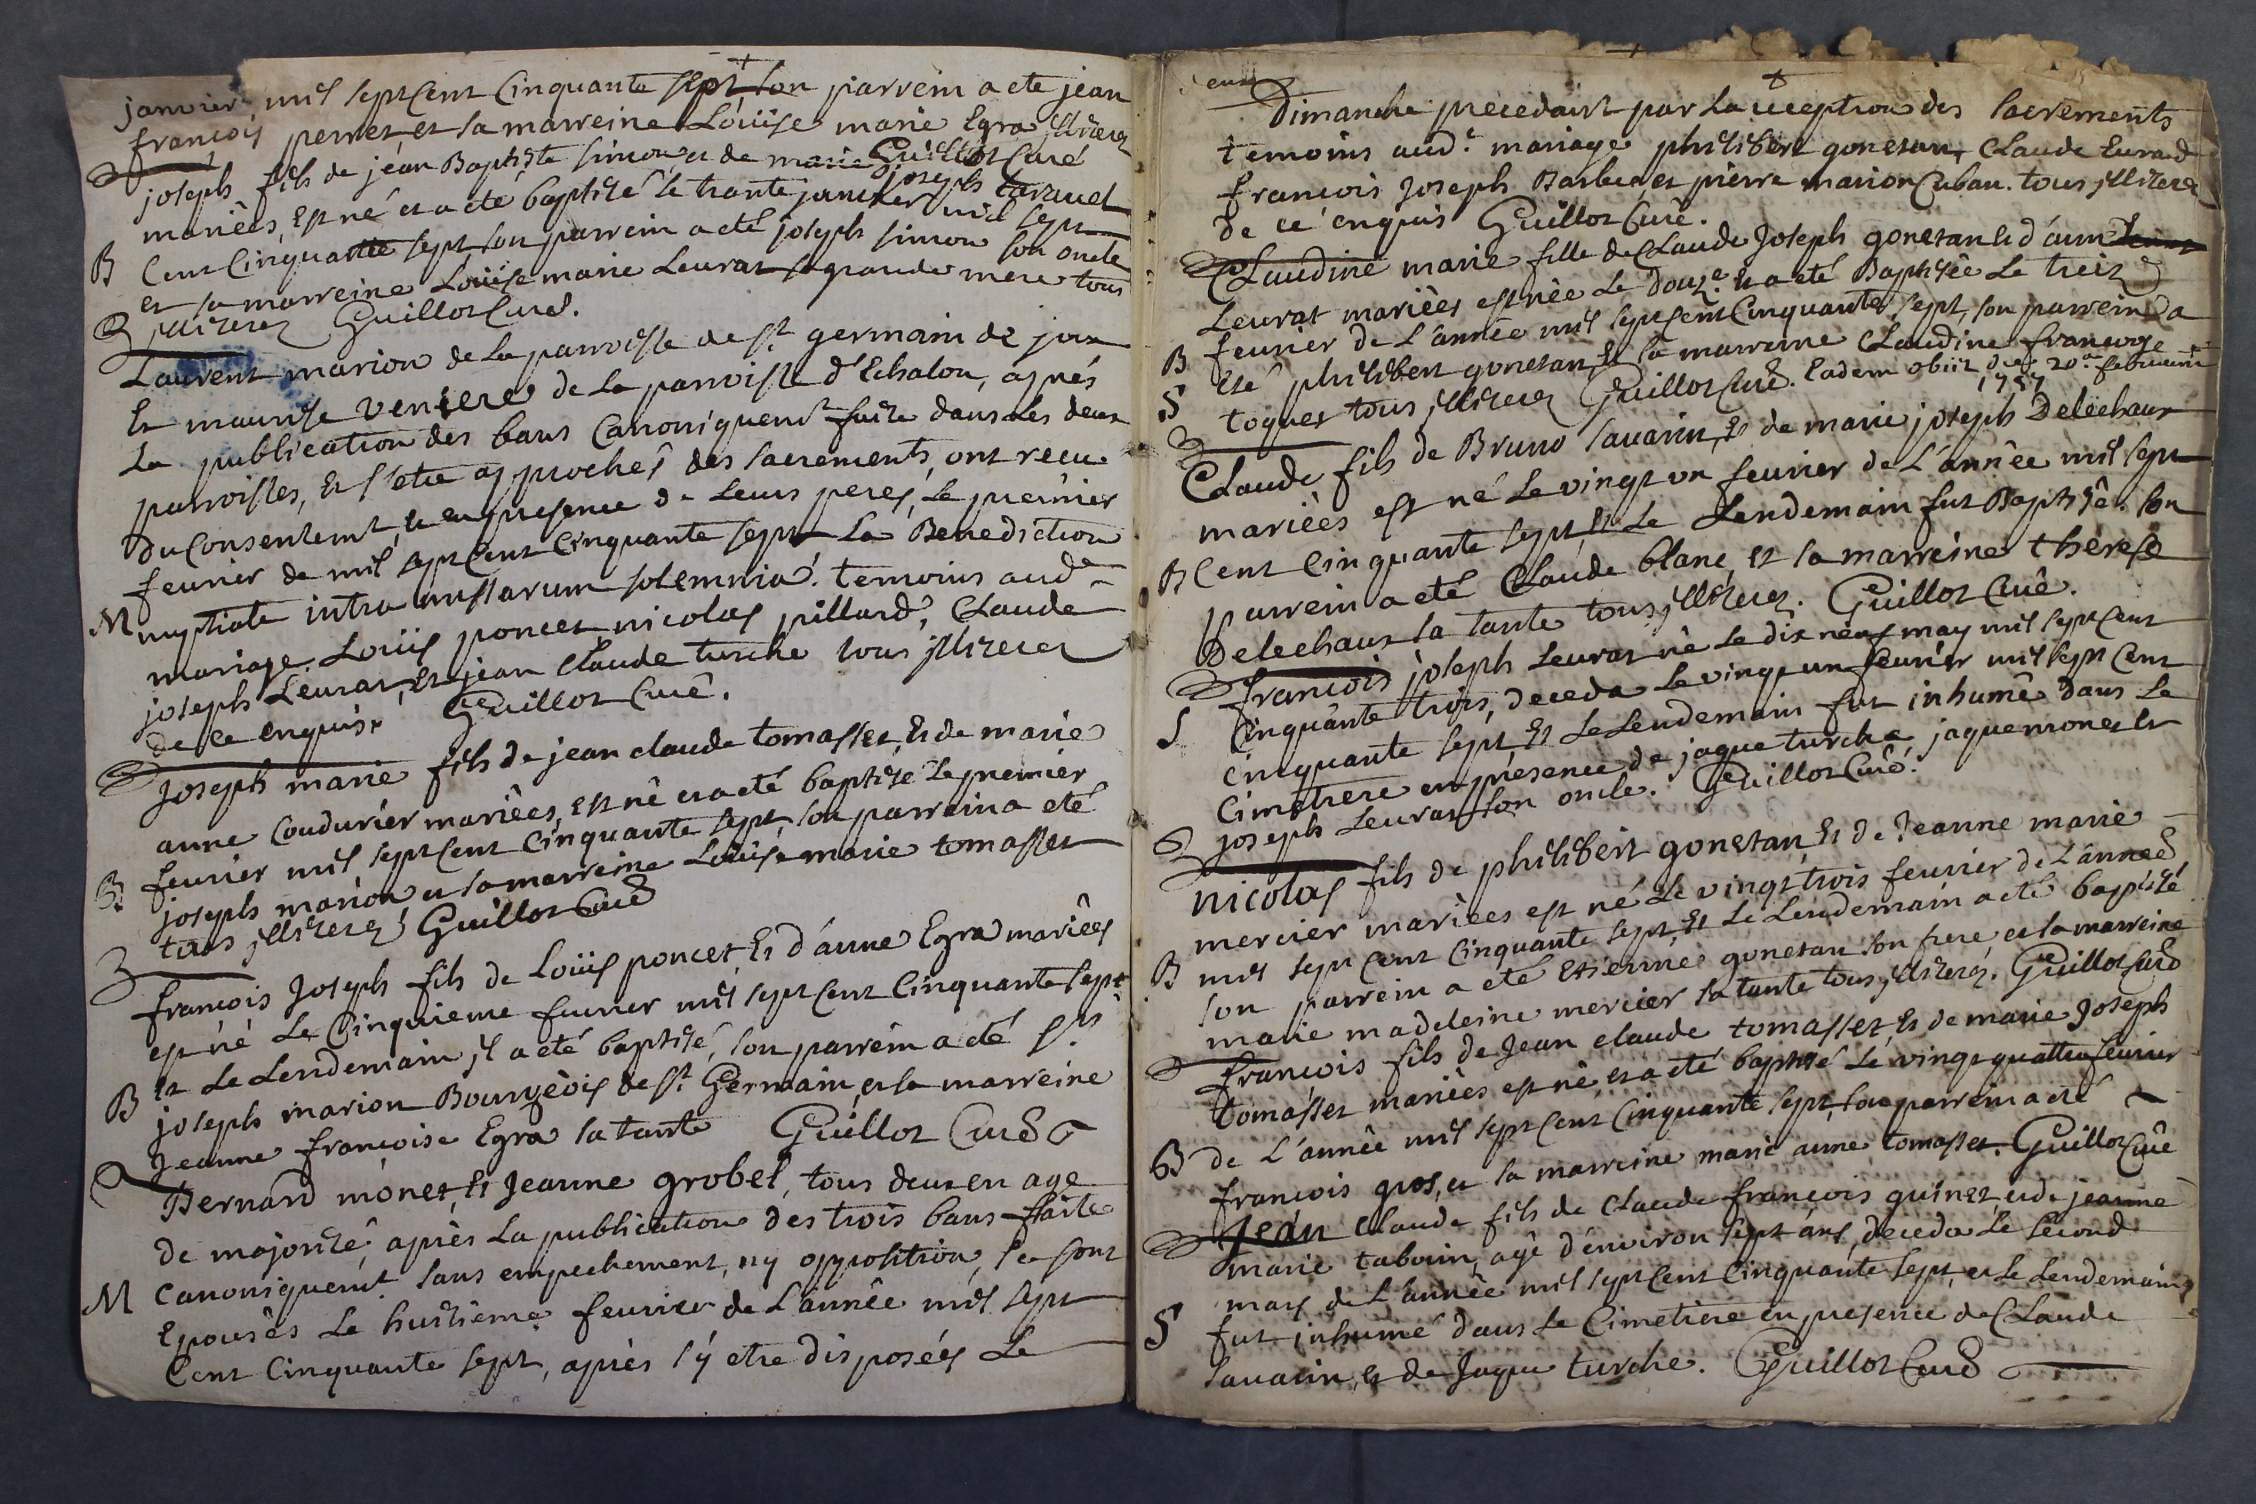 janvier mil sept Cent Cinquante sept, son parrein a ete jean
françois perret et sa marreine Loüise marie Egra jllizerez
Guillot Curé
joseph fils de jean Baptiste simon et de marie joseph tavanel
mariêes, Est né et a eté baptizé le trante janvier mil sept
B Cent Cinquante sept son parrein a eté joseph simon son oncle
et sa marreine Loüise marie Leurat sa grande mere tous
jllizerez Guillot Curé.
Laurent marion de la parroisse de st germain de joux
Et maurise veniere de la parroisse d'Echalon, aprés
La publication des bans Canoniquemt faite dans les deux
parroisses, Et s'etre approchés des sacrements, ont recu
Du Consentemt, et en presence de Leurs peres, Le premier
fevrier de mil sept Cent Cinquante sept La Benediction
M nuptiale intra missarum solemnia. temoins aud.
mariage. Loüis poncet, nicolas pillard, Claude
joseph Leurat, Et jean Claude turche tous jllizerez
de ce enquis. Guillot Curê.
Joseph marie fils de jean claude tomasset, Et de marie
anne Coudurier mariêes, est nê et a eté baptizé le premier
B fevrier mil sept Cent Cinquante sept, son parrein a eté
joseph marion et sa marreine Loüise marie tomasset
tous jllizerez Guillot Curé
françois Joseph fils de Loüis poncet, Et d'anne Egra mariêes
est né Le Cinquieme fevrier mil sept Cent Cinquante sept
Et Le Lendemain jl a eté baptizé, son parrein a eté sr
B joseph marion Bourgeois de st Germain, et la marreine
Jeanne françoise Egra sa tante Guillot Curé
Bernard monet, Et Jeanne grobel, tous deux en age
de majorité, après La publication des trois bans faite
M Canoniquemt sans empechement, ny opposition, se sont
Epousês Le huitième fevrier de L'annêe mil sept
Cent Cinquante sept, après s'y etre disposées Le
Dimanche precedant par La reception des sacrements
temoins aud. mariage philibert gonetan, Claude Eurard
françois Joseph Barbe et pierre marion Cuban. tous jllizerez
de ce enquis Guillot Curê.
Claudine marie fille de Claude Joseph gonetan Et d'anne
Leurat mariêes est née Le douze. Et a eté Baptisêe Le treize
B fevrier de L'année mil sept Cent Cinquante sept, son parrein a
S Eté philibert gonetan, Et sa marreine Claudine françoise
toquet tous jllizerez Guillot Curé. Eadem obiit die 20a februarii
1757
Claude fils de Bruno savarin, Et de marie joseph Delechaux
mariêes est né Le vingt un fevrier de L'annêe mil sept
B Cent Cinquante sept, Et Le Lendemain fut Baptisê. son
parrein a eté Claude blanc, et sa marreine therese
Delechaux sa tante tous jllizerez. Guillot Curê.
françois joseph Leurat nê Le dix neuf may mil sept Cent
S Cinquante trois, deceda Le vingt un fevrier mil sept Cent
cinquante sept, Et Le Lendemain fut inhumê dans Le
Cimetiere en presence de jaque turche jaque monet Et
joseph Leurat son oncle. Guillot Curê.
Nicolas fils de philibert gonetan, Et de Jeanne marie
mercier mariêes est né Le vingt trois fevrier de L'année
B mil sept Cent Cinquante sept, Et Le Lendemain a eté baptizé
son parrein a été Etienne gonetan son frere, et la marreine
marie madeleine mercier sa tante tous jllizerez. Guillot Curé
françois fils de Jean claude tomasset, Et de marie Joseph
tomasset mariêes est nê, et a eté baptisé Le vingt quattre fevrier
B de L'annêe mil sept Cent Cinquante sept, son parrein a eté
françois gros, et sa marreine marie anne tomasset. Guillot Curê
Jean Claude fils de Claude françois guinet, et de jeanne
marie tabouin, agé d'environ sept ans, deceda Le second
mars de L'année mil sept Cent Cinquante sept, et Le Lendemain
S fut jnhumé dans Le Cimetiere en presence de Claude
savarin, et de Jaque turche. Guillot Curé